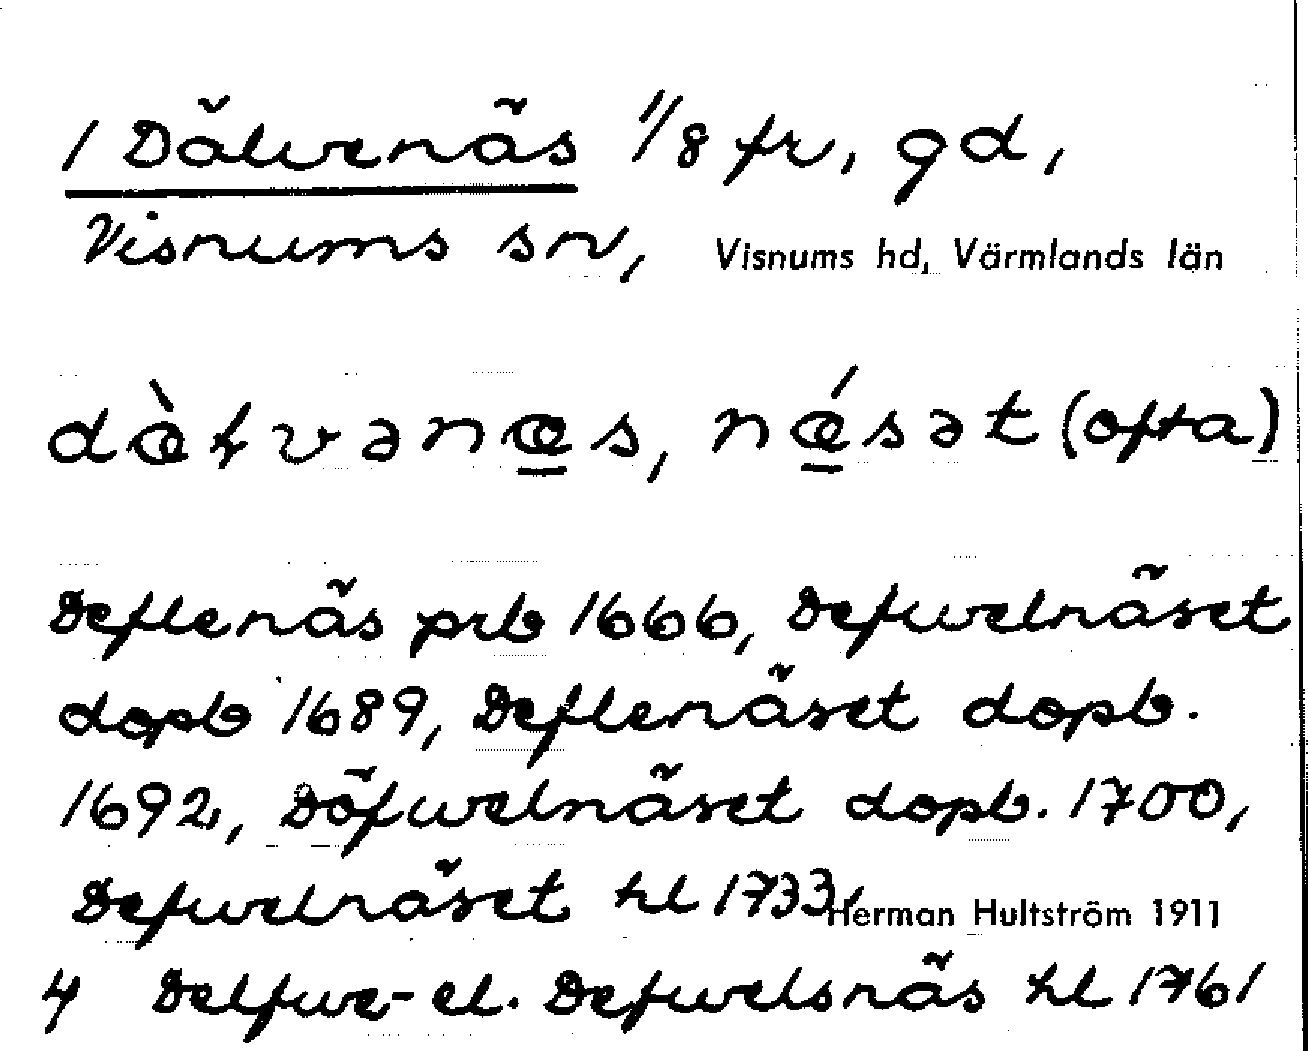 1 Dälvenäs 1/8 fr, gd,
Visnums sn, Visnums hd, Värmlands län
dæ̀ɫvənæs, nǽsət (ofta)
Deflenäs prb 1666, Defwelnäset
dopb 1689, Deflenäset dopb.
1692, Döfwelnäset dopb. 1700,
Defwelnäset hl 1733,
Herman Hultström 1911
4 Delfwe- el. Defwelsnäs hl 1761